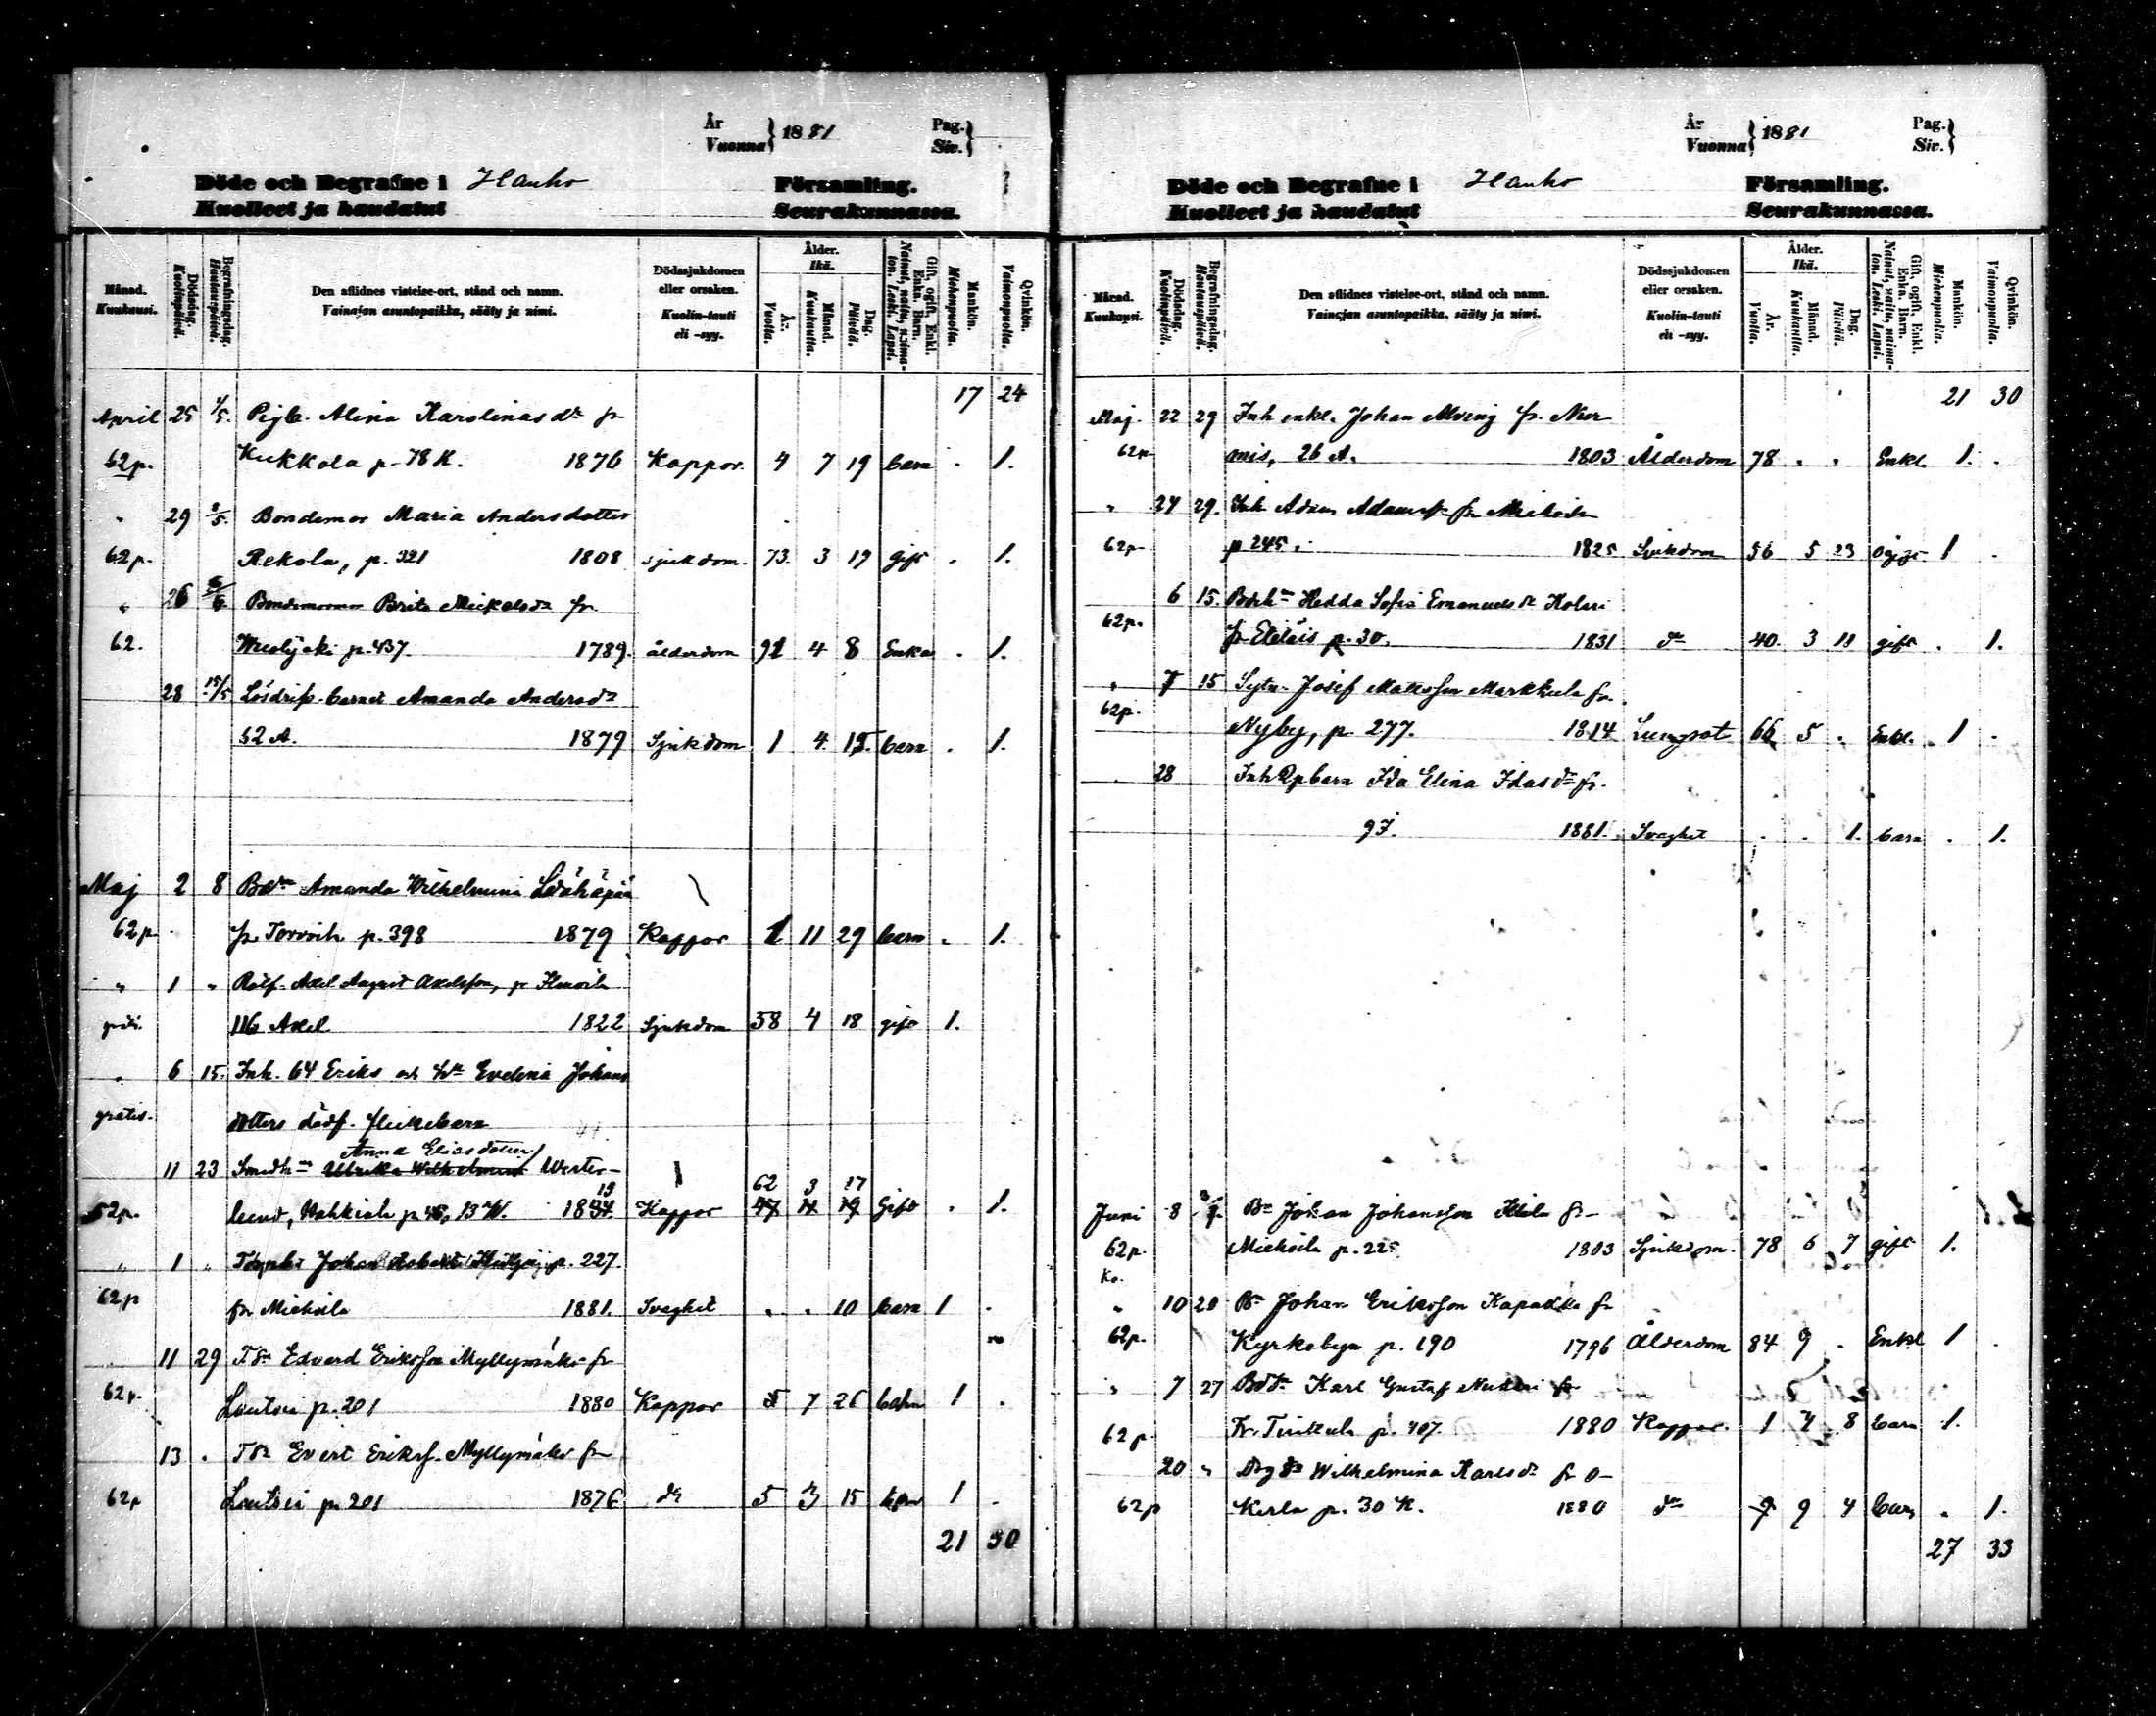 År
Vuonna } 1881 Pag.
Siv. }
Döde och Begrafne i Hauho Församling.
Kuolleet ja haudatut Seurakunnassa.
Månad.
Kuukausi.
Dödsdag.
Kuolinpäivä.
Begrafningsdag.
Hautauspäivä.
Den aflidnes vistelse-ort, stånd och namn.
Vainajan asuntopaikka, sääty ja nimi.
Dödssjukdomen
eller orsaken.
Kuolin-tauti
eli -syy.
Ålder.
Ikä.
År.
Vuotta.
Månad.
Kuukautta.
Dag.
Päivää.
Gift, ogift, Enkl.
Enka. Barn.
Nainut, naima-
ton. Leski. Lapsi.
Mankön.
Miehenpuolia.
Qvinkön.
Vaimonpuolia.
17 24
April 25 1/5. Pigb. Alina Karolinas dr fr
62p. Kukkola p. 78 K. 1876 Koppor. 4 7 19 barn . 1.
" 29 8/5. Bondemor Maria Andersdotter
62p. Rekola, p. 321 1808 sjukdom. 73. 3 19 gift . 1.
" 26 Bondemormor Brita Mickelsdr fr.
62. p. 437. 1789. ålderdom 91 4 8 Enka . 1.
28 15/5 Lösdrifv. barnet Amanda Andersdr
62 A. 1879 Sjukdom 1 4 15 barn . 1.
Maj 2 8 Bdr Amanda Wilhelmina
62p. fr. p. 398 1879 Koppor 1 11 29 barn . 1.
" 1 " Axel August Axelsson, fr
116 Axel 1822 Sjukdom 58 4 18 gift 1.
" 6 15. Inh. 64 Eriks och Evelina Johans
gratis. dotters dödf. flickebarn
Anna Eliasdotter
11 23 Smedh Ulrika Wilhelmina Wester-
19 62 3 17
62p. lund, p 45, 13 W. 1834. Koppor 47 4 19 Gift . 1.
" 1 " Johan Robert p. 227.
62p fr Miehoila 1881. Svaghet . . 10 barn 1 .
" 11 29 Tdr Edvard Eriksson Myllymäki fr
62p. p. 201 1880 Koppor 7 26 barn 1 .
13 . Tdr Evert Eriksf. Myllymäki fr
62p p. 201 1876 do 5 3 15 barn 1 .
21 30
År
Vuonna } 1881 Pag.
Siv. }
Döde och Begrafne i Hauho Församling.
Kuolleet ja haudatut Seurakunnassa.
Månad.
Kuukausi.
Dödsdag.
Kuolinpäivä.
Begrafningsdag.
Hautauspäivä.
Den aflidnes vistelse-ort, stånd och namn.
Vainajan asuntopaikka, sääty ja nimi.
Dödssjukdomen
eller orsaken.
Kuolin-tauti
eli -syy.
Ålder.
Ikä.
År.
Vuotta.
Månad.
Kuukautta.
Dag.
Päivää.
Gift, ogift, Enkl.
Enka. Barn.
Nainut, naima-
ton. Leski. Lapsi.
Mankön.
Miehenpuolia.
Qvinkön.
Vaimonpuolia.
21 30
Maj. 22 29 Inh enkl. Johan Alvenig fr. Nur
62p mis, 26 A. 1803 Ålderdom 78 . . Enkl. 1. .
" 24 29. Inh Adam Adamsf. fr Miehoila
62p. p 245. 1825 Sjukdom 56 5 23 Ogift 1 .
6 15. Hedda Sofia Emanuels dr Kolari
62p. fr Eteläis p. 30. 1831 do 40. 3 11 gift . 1.
" 7 15 Sytn. Josef Matsson Markkula fr.
62p. Nyby, p. 277. 1814 Lungsot 66 5 . Enkl. . 1 .
. 28 Inh barn Ida Elina Idasdr fr.
1881. Svaghet . . 1. barn . 1.
Juni 8 Bn Johan Johansson fr
62p. Miehoila p. 225 1803 Sjukdom. 78 6 7 gift 1.
Ko.
" 10 20 Bn Johan Eriksson Kapakka fr
62p. Kyrkobyn p. 190 1796 Ålderdom 84 9 . Enkl 1 .
" 7 27 Bdr Karl Gustaf fr
62p. p. 407. 1880 Koppor. 1 4 8 barn 1.
20 " Wilhelmina Karlsdr fr
62p p. 30 K. 1880 do 9 4 barn . 1.
27 33